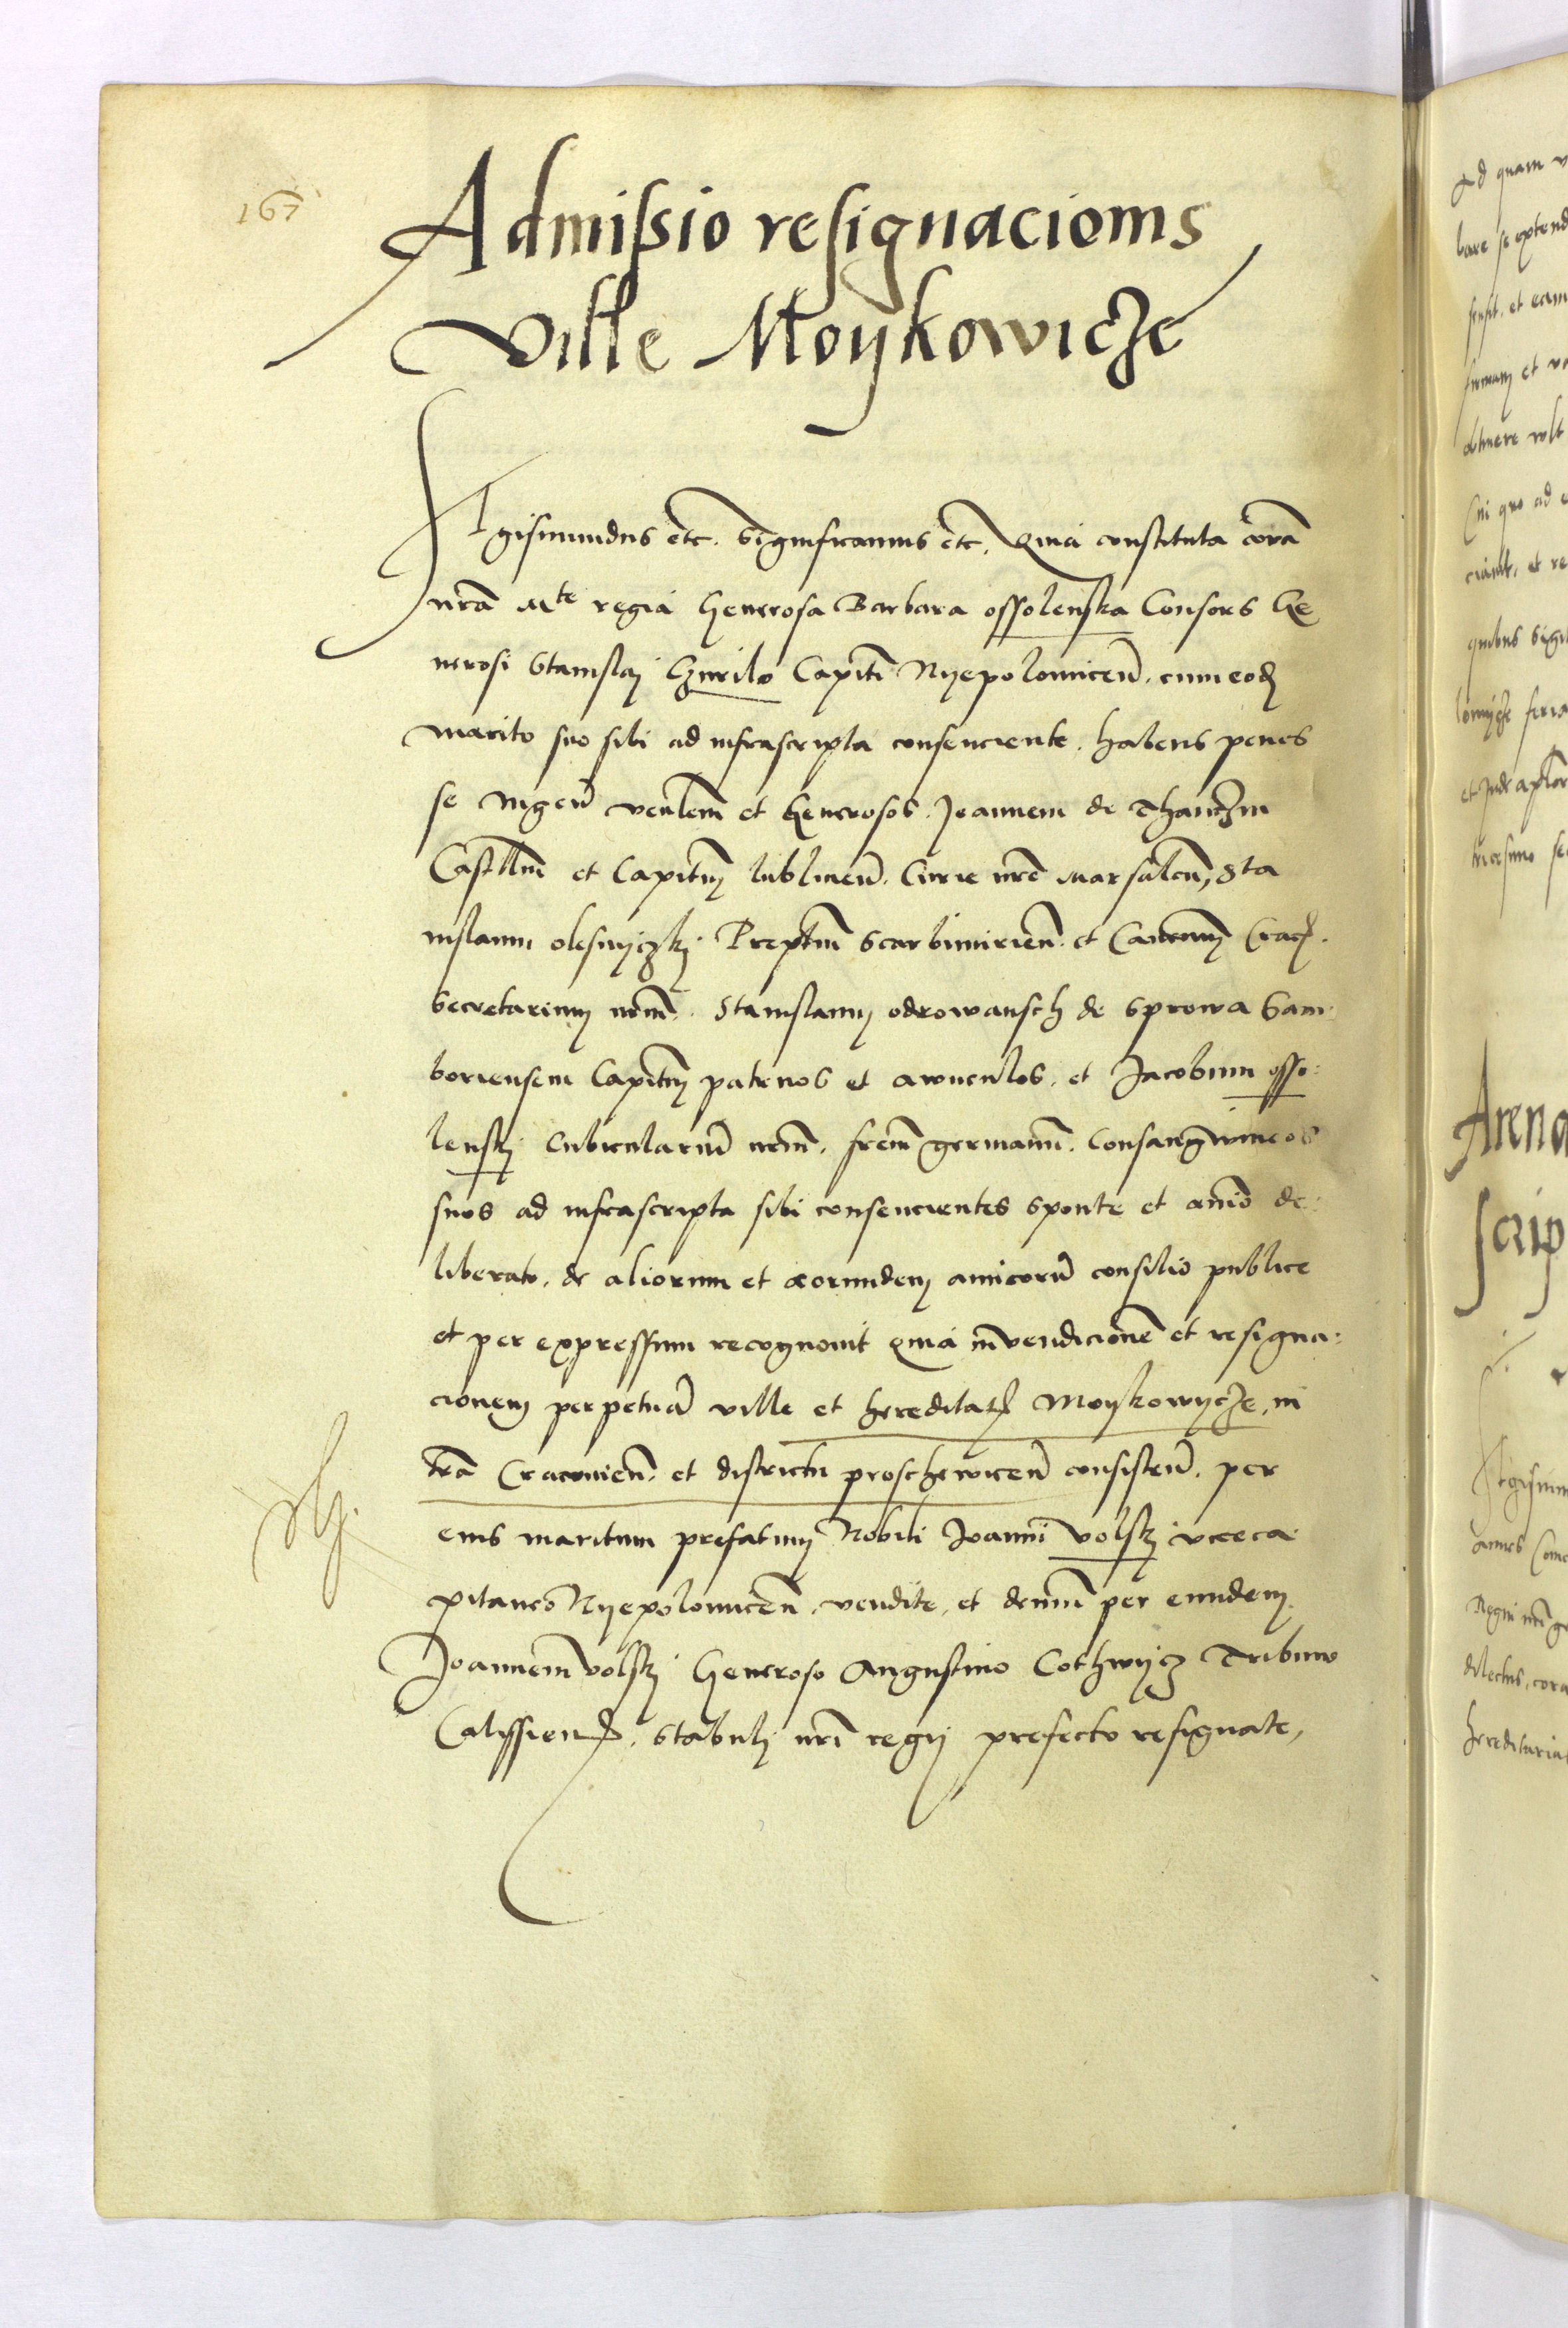 167
Admissio resignacionis
Ville Moykowicze
Sigismundus etc. Significamus etc. Quia constituta corā
nrā Mte regia Generosa Barbara ossolenska Consors Ge
nerosi Stanislaj Gzurilo Capiti Nyepolomiceñ. cum eodē
marito suo sibi ad infrascripta consenciente. habens penes
se et Generosos. Joannem de Thanczin
Castllm et Capitm lublineñ. Curie nrē Marsalcū, Sta
nislaum olesnyczkj. Prepltm Scarbimirieñ. et Canonm Crac.
Secretarium nrm. Stanislaum odrowansch de Sprowa Sam
boriensem Capitm patruos et avunculos, et Jacobum osso:
lenskj Cubiculariū nrm. frem germanū. Consangwineos
suos ad infrascripta sibi consencientes sponte et animo de:
liberato, de aliorum et eorundem amicorū consilio publice
et per expressum recognovit Quia in vendicionē et resigna:
cionem perpetuā ville et hereditatis Moykowycze, in
trā Cracovieñ. et districtu proschewiceñ consisteñ. per
eius maritum prefatum Nobili Joanni volskj viceca
pitaneo Nyepolomiceñ. vendite, et demū per eundem
Joannem volskj Generoso Augustino Cothwycz Tribuno
Calissien. Stabulj nri regij prefecto resignate,
Ad quam
bare se extend
sensit. et eam
firmam et
obtinere volt
Cui quo ad
ciamt. et re
quibus Sigi
feria
tricesimo se
Arena
scrip
Sigism
Regni nri
dilectus, cora
hereditaria